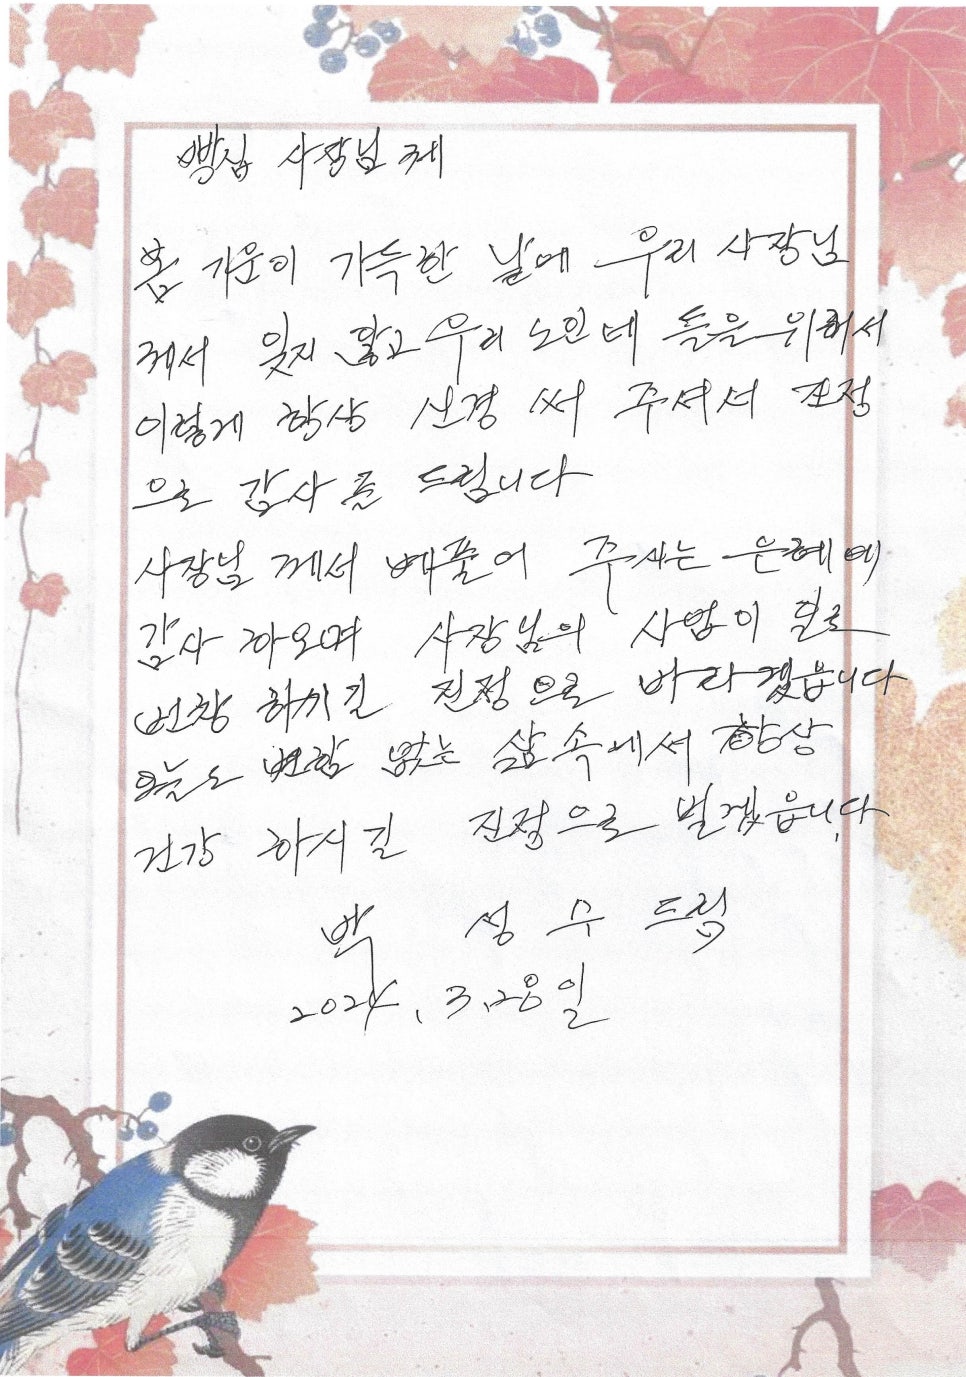 빵심 사장님 게
봄 기운이 가득한 날에 우리 사장님
께서 잊지 않고 우리 노인네 들을 위해서
이렇게 항상 신경 써 주셔서 진정
으로 감사를 드립니다
사장님 께서 베풀어 주시는 은혜에
감사 하오며 사장님의 사업이 날로
번창 하시길 진정으로 바라겠읍니다
오늘도 변함 없는 삶속에서 항상
건강 하시길 진정으로 빌겠읍니다
박 성 수 드림
2024. 3. 28일